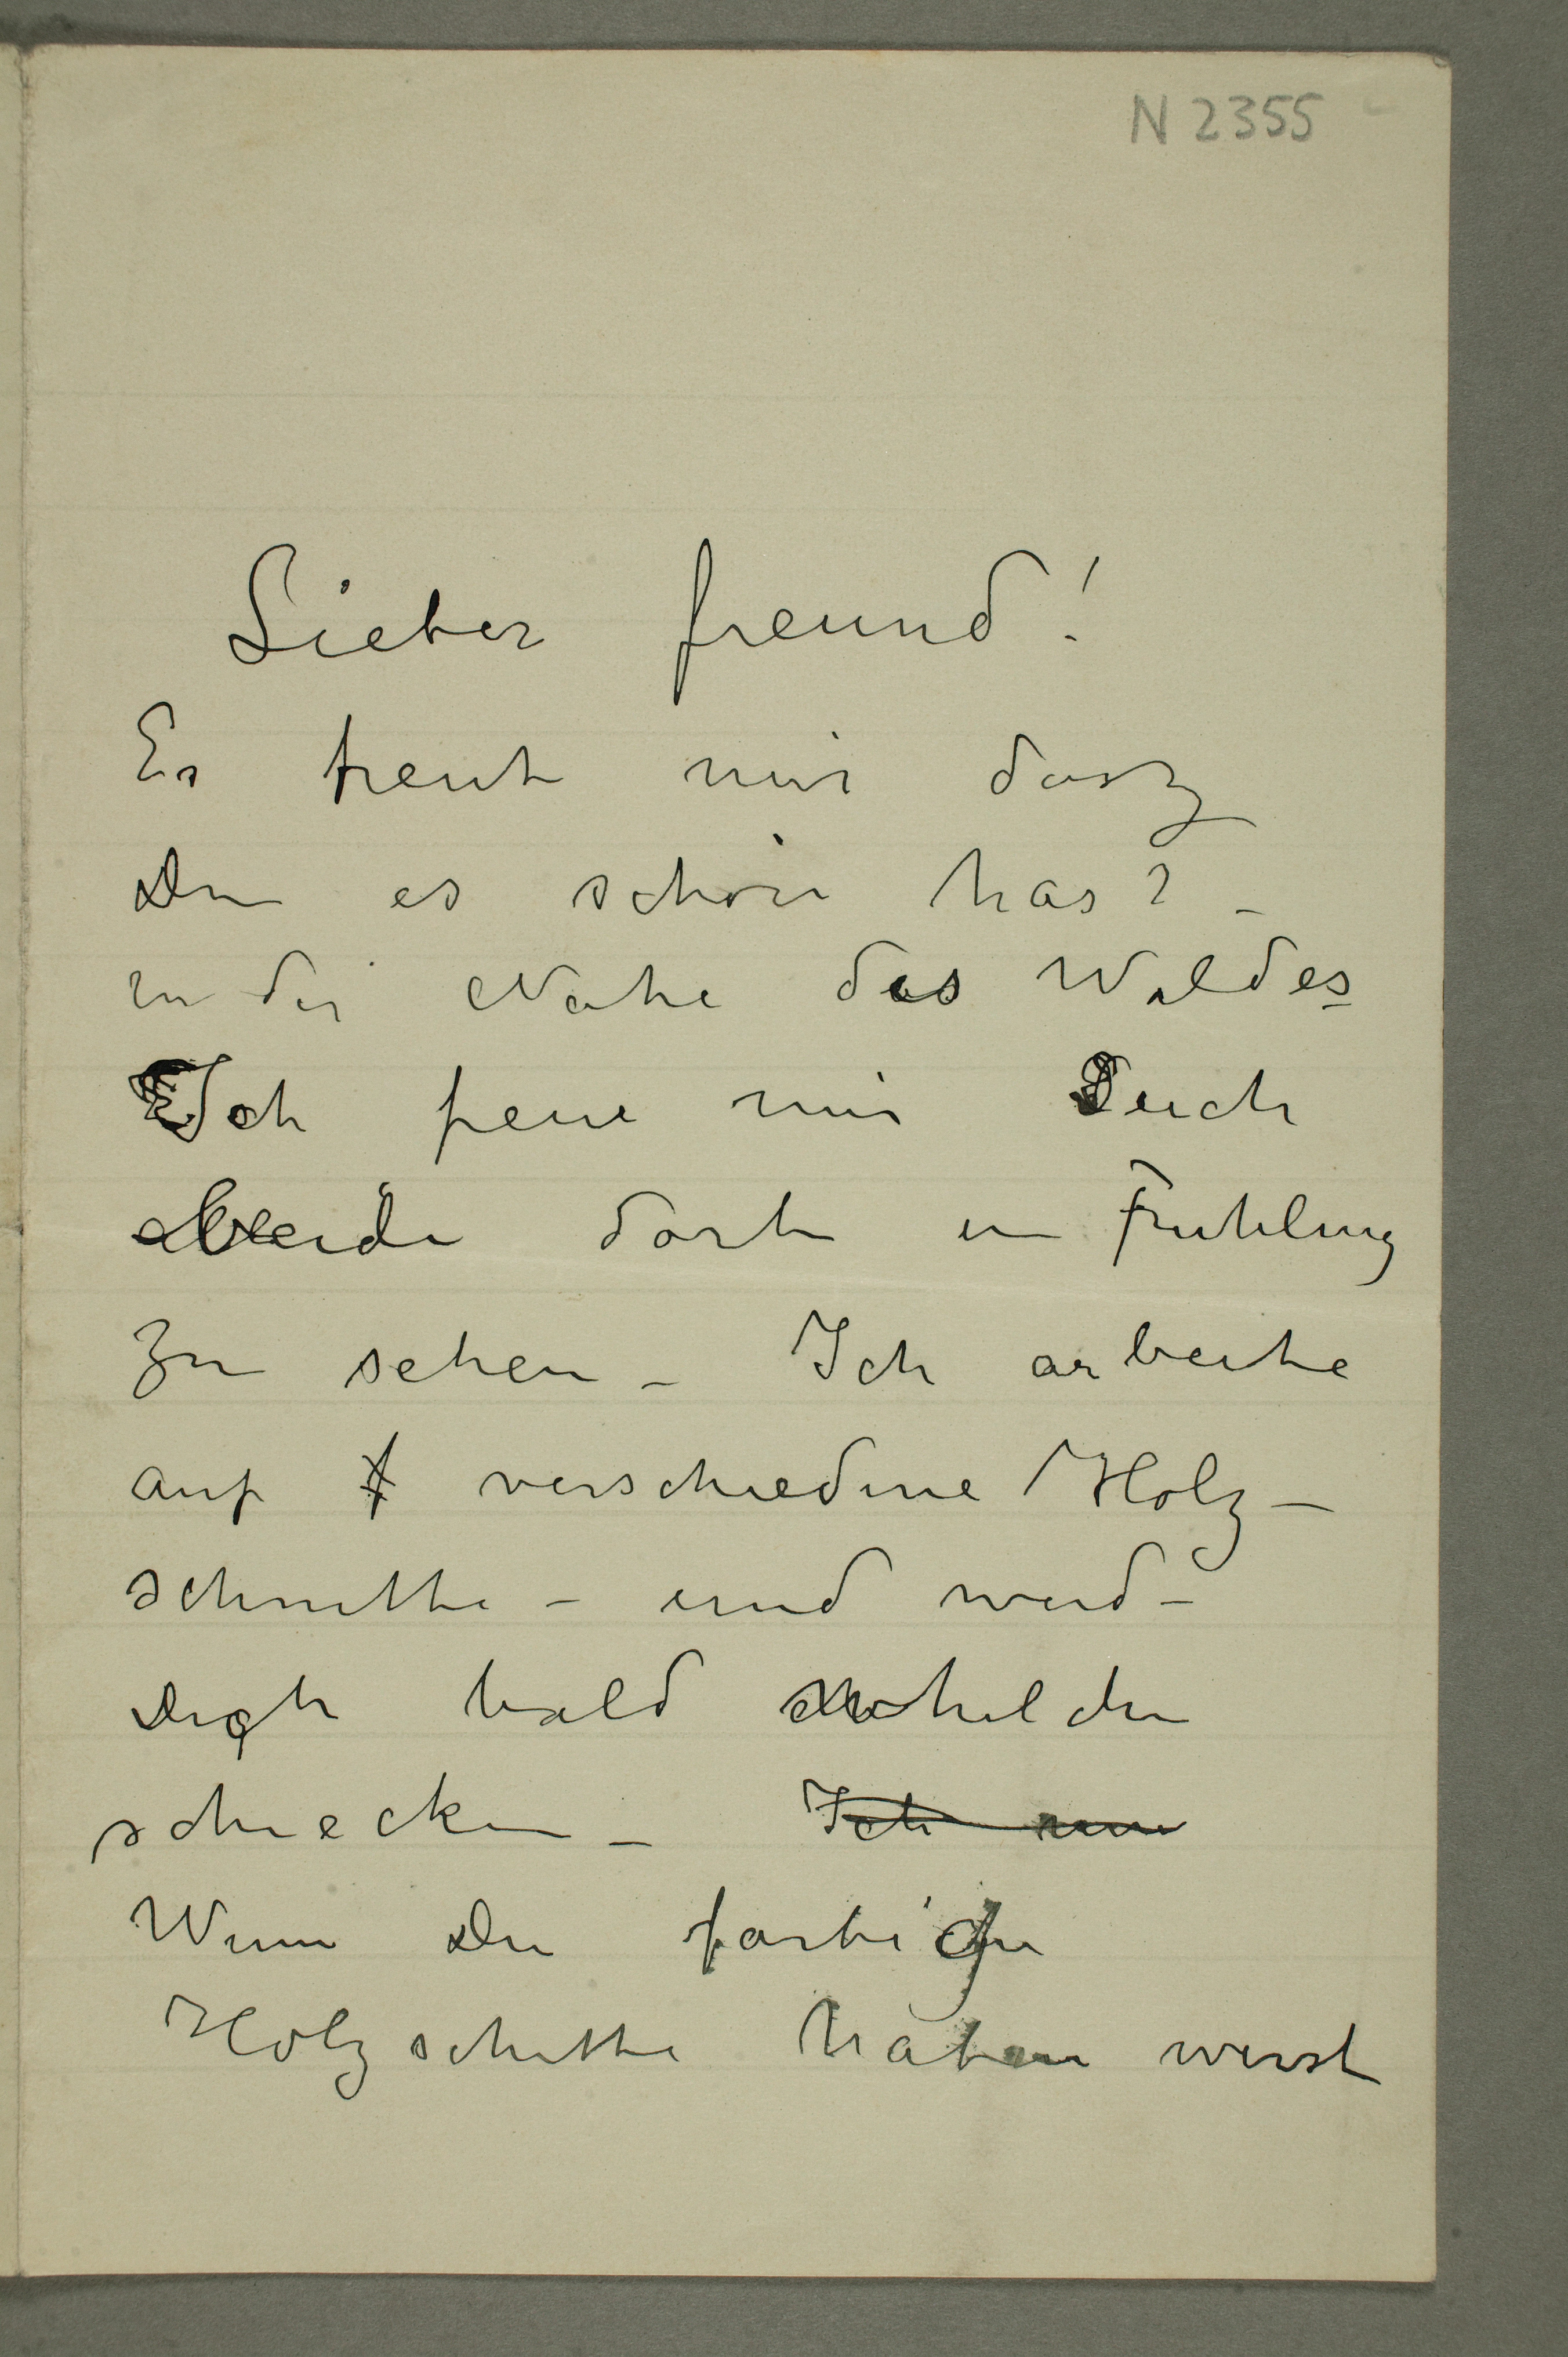 N 2355
Lieber Freund!
Es freut mir dasz
Du es schön has? –
in der Nähe des Waldes
Ich freue mir Euch
beide dort in Frühling
zu sehen – Ich arbeite
auf f verschiedene Holz–
schnitte – und werd–
Dich bald welche
schiecken – Ich
Wenn Du farbige
Holzschitte haben wirst